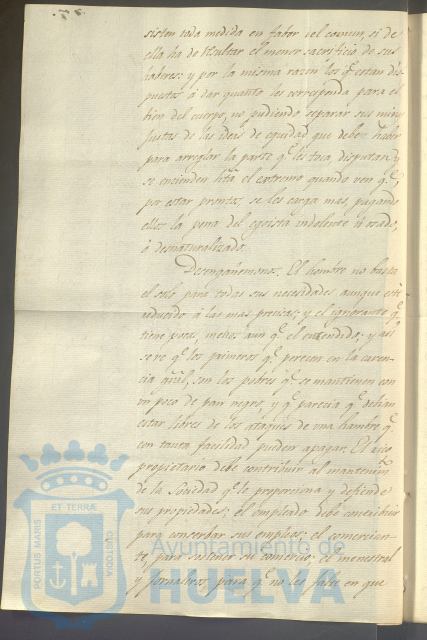 sisten toda medida en fabor del comun, si de
ella ha de resultar el menor sacrificio de sus
haberes: y por la misma razon los q.e estan dis-
puestos á dar quanto les corresponda para el
bien del cuerpo, no pudiendo separar sus mira-
justas de las ideas de equidad que deben haber
para arreglar la parte q.e les toca, disputan y
se encienden hta. el extremo quando ven q.e,
por estar prontos, se les carga mas, pagando
ellos la pena del egoista indolente ú osado,
ó desnaturalizado.
Desengañemonos. El hombre no basta
el solo para todas sus necesidades aunque esté
reducido á las mas precisas; y el ignorante q.e
tiene pocas, menos aun q.e el entendido; y asi
se ve q.e los primeros q.e perecen en la caren-
cia son los pobres q.e se mantienen con
un poco de pan negro, y q.e parecia q.e debian
estar libres de los ataques de una hambre q.e
con tanta facilidad pueden apagar. El rico
propietario debe contribuir al mantenim.to
de la Sociedad q.e le proporciona y defiende
sus propiedades; el empleado debe concribuir
para conserbar sus empleos; el comercian-
te, para sostener su comercio; el menestral
y jornaleros para q.e no les falte en que
PORTUS MARIS
ET TERRÆ
CUSTODIA
Ayuntamiento de
HUELVA